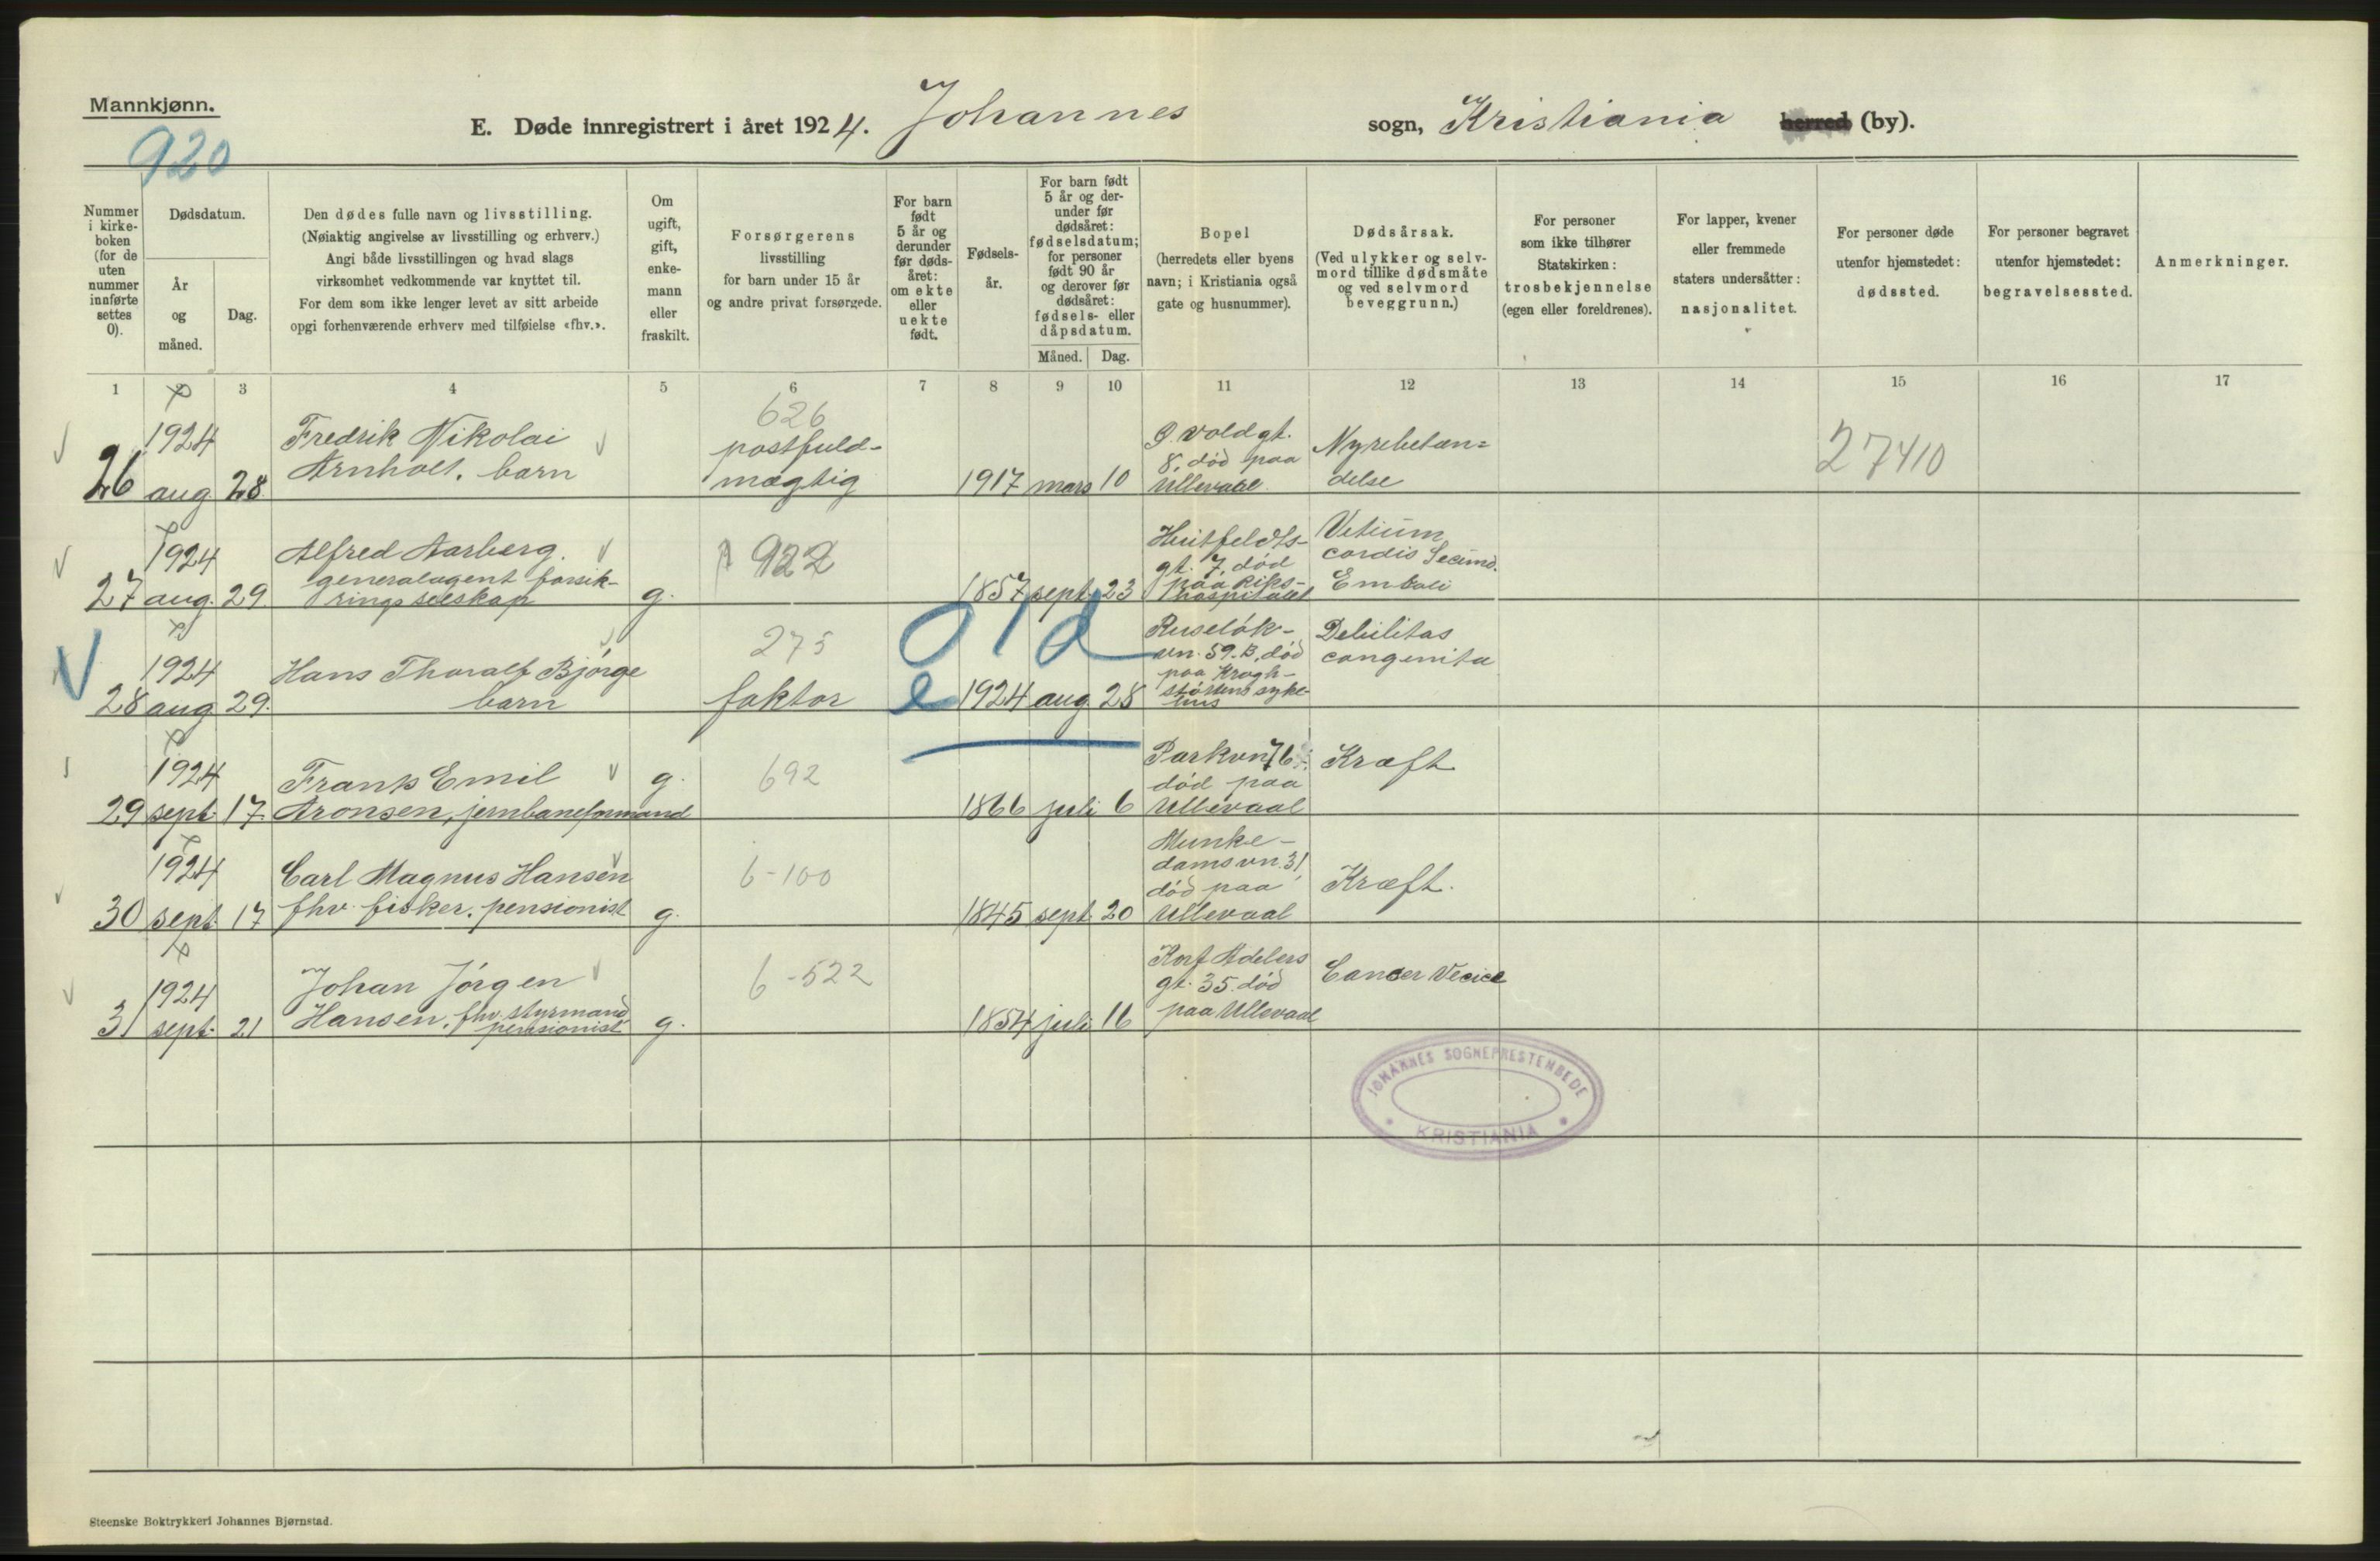 Mannkjønn.
920
E. Døde innregistrert i året 1924. Johannes sogn, Kristiania herred (by).
Nummer
i kirke-
boken
(for de
uten
nummer
innførte
settes
0).
Dødsdatum.
År
og
måned.
Dag.
Den dødes fulle navn og livsstilling.
(Nøiaktig angivelse av livsstilling og erhverv.)
Angi både livsstillingen og hvad slags
virksomhet vedkommende var knyttet til.
For dem som ikke lenger levet av sitt arbeide
opgi forhenværende erhverv med tilføielse «fhv.».
Om
ugift,
gift,
enke-
mann
eller
fraskilt.
Forsørgerens
livsstilling
for barn under 15 år
og andre privat forsørgede.
For barn
født
5 år og
derunder
før døds-
året:
om ekte
eller
uekte
født.
Fødsels-
år.
For barn født
5 år og der-
under før
dødsåret:
fødselsdatum;
for personer
født 90 år
og derover før
dødsåret:
fødsels- eller
dåpsdatum.
Måned. Dag.
Bopel
(herredets eller byens
navn; i Kristiania også
gate og husnummer).
Dødsårsak.
(Ved ulykker og selv-
mord tillike dødsmåte
og ved selvmord
beveggrunn.)
For personer
som ikke tilhører
Statskirken:
trosbekjennelse
(egen eller foreldrenes).
For lapper, kvener
eller fremmede
staters undersåtter:
nasjonalitet.
For personer døde
utenfor hjemstedet:
dødssted.
For personer begravet
utenfor hjemstedet:
begravelsessted.
Anmerkninger.
1 2 3 4 5 6 7 8 9 10 11 12 13 14 15 16 17
26
1924
aug 28
Fredrik Nikolai
Arnholt, barn
626
postfuld-
mægtig
1917 mars 10
voldgt.
8, død paa
Ullevaal
Nyrebetæn=
delse
27410
27
1924
aug. 29
Alfred Aarberg.
generalagent forsik-
ringsselskap
g.
922
1857 sept. 23
Huitfeldts-
gt. 7, død
paa Riks-
hospitalet
Vitium
cordis Secund.
Emboli
28
1924
aug 29.
Hans Thoralf Bjørge
barn
275
faktor
e
1924 aug. 28
Ruseløk-
vn. 59.B, død
paa Krogh-
støttens syke-
hus
Debilitas
congenita
29
1924
sept. 17.
Frans Emil
Aronsen, jernbaneformand
g.
692
1866 juli 6
Parkvn 76
død paa
Ullevaal
Kræft
30
1924
sept. 17
Carl Magnus Hansen
fhv. fisker. pensionist
g.
6-100
1845 sept. 20
Munke-
damsvn. 31,
død paa
Ullevaal
Kræft.
31
1924
sept. 21
Johan Jörgen
Hansen, fhv. styrmand
pensionist
g.
6-522
1854 juli 16
Kort Adelers
gt. 35. død
paa Ullevaal
Cancer Vecice
JOHANNES SOGNEPRESTEMBEDE
KRISTIANIA
Steenske Boktrykkeri Johannes Bjørnstad.